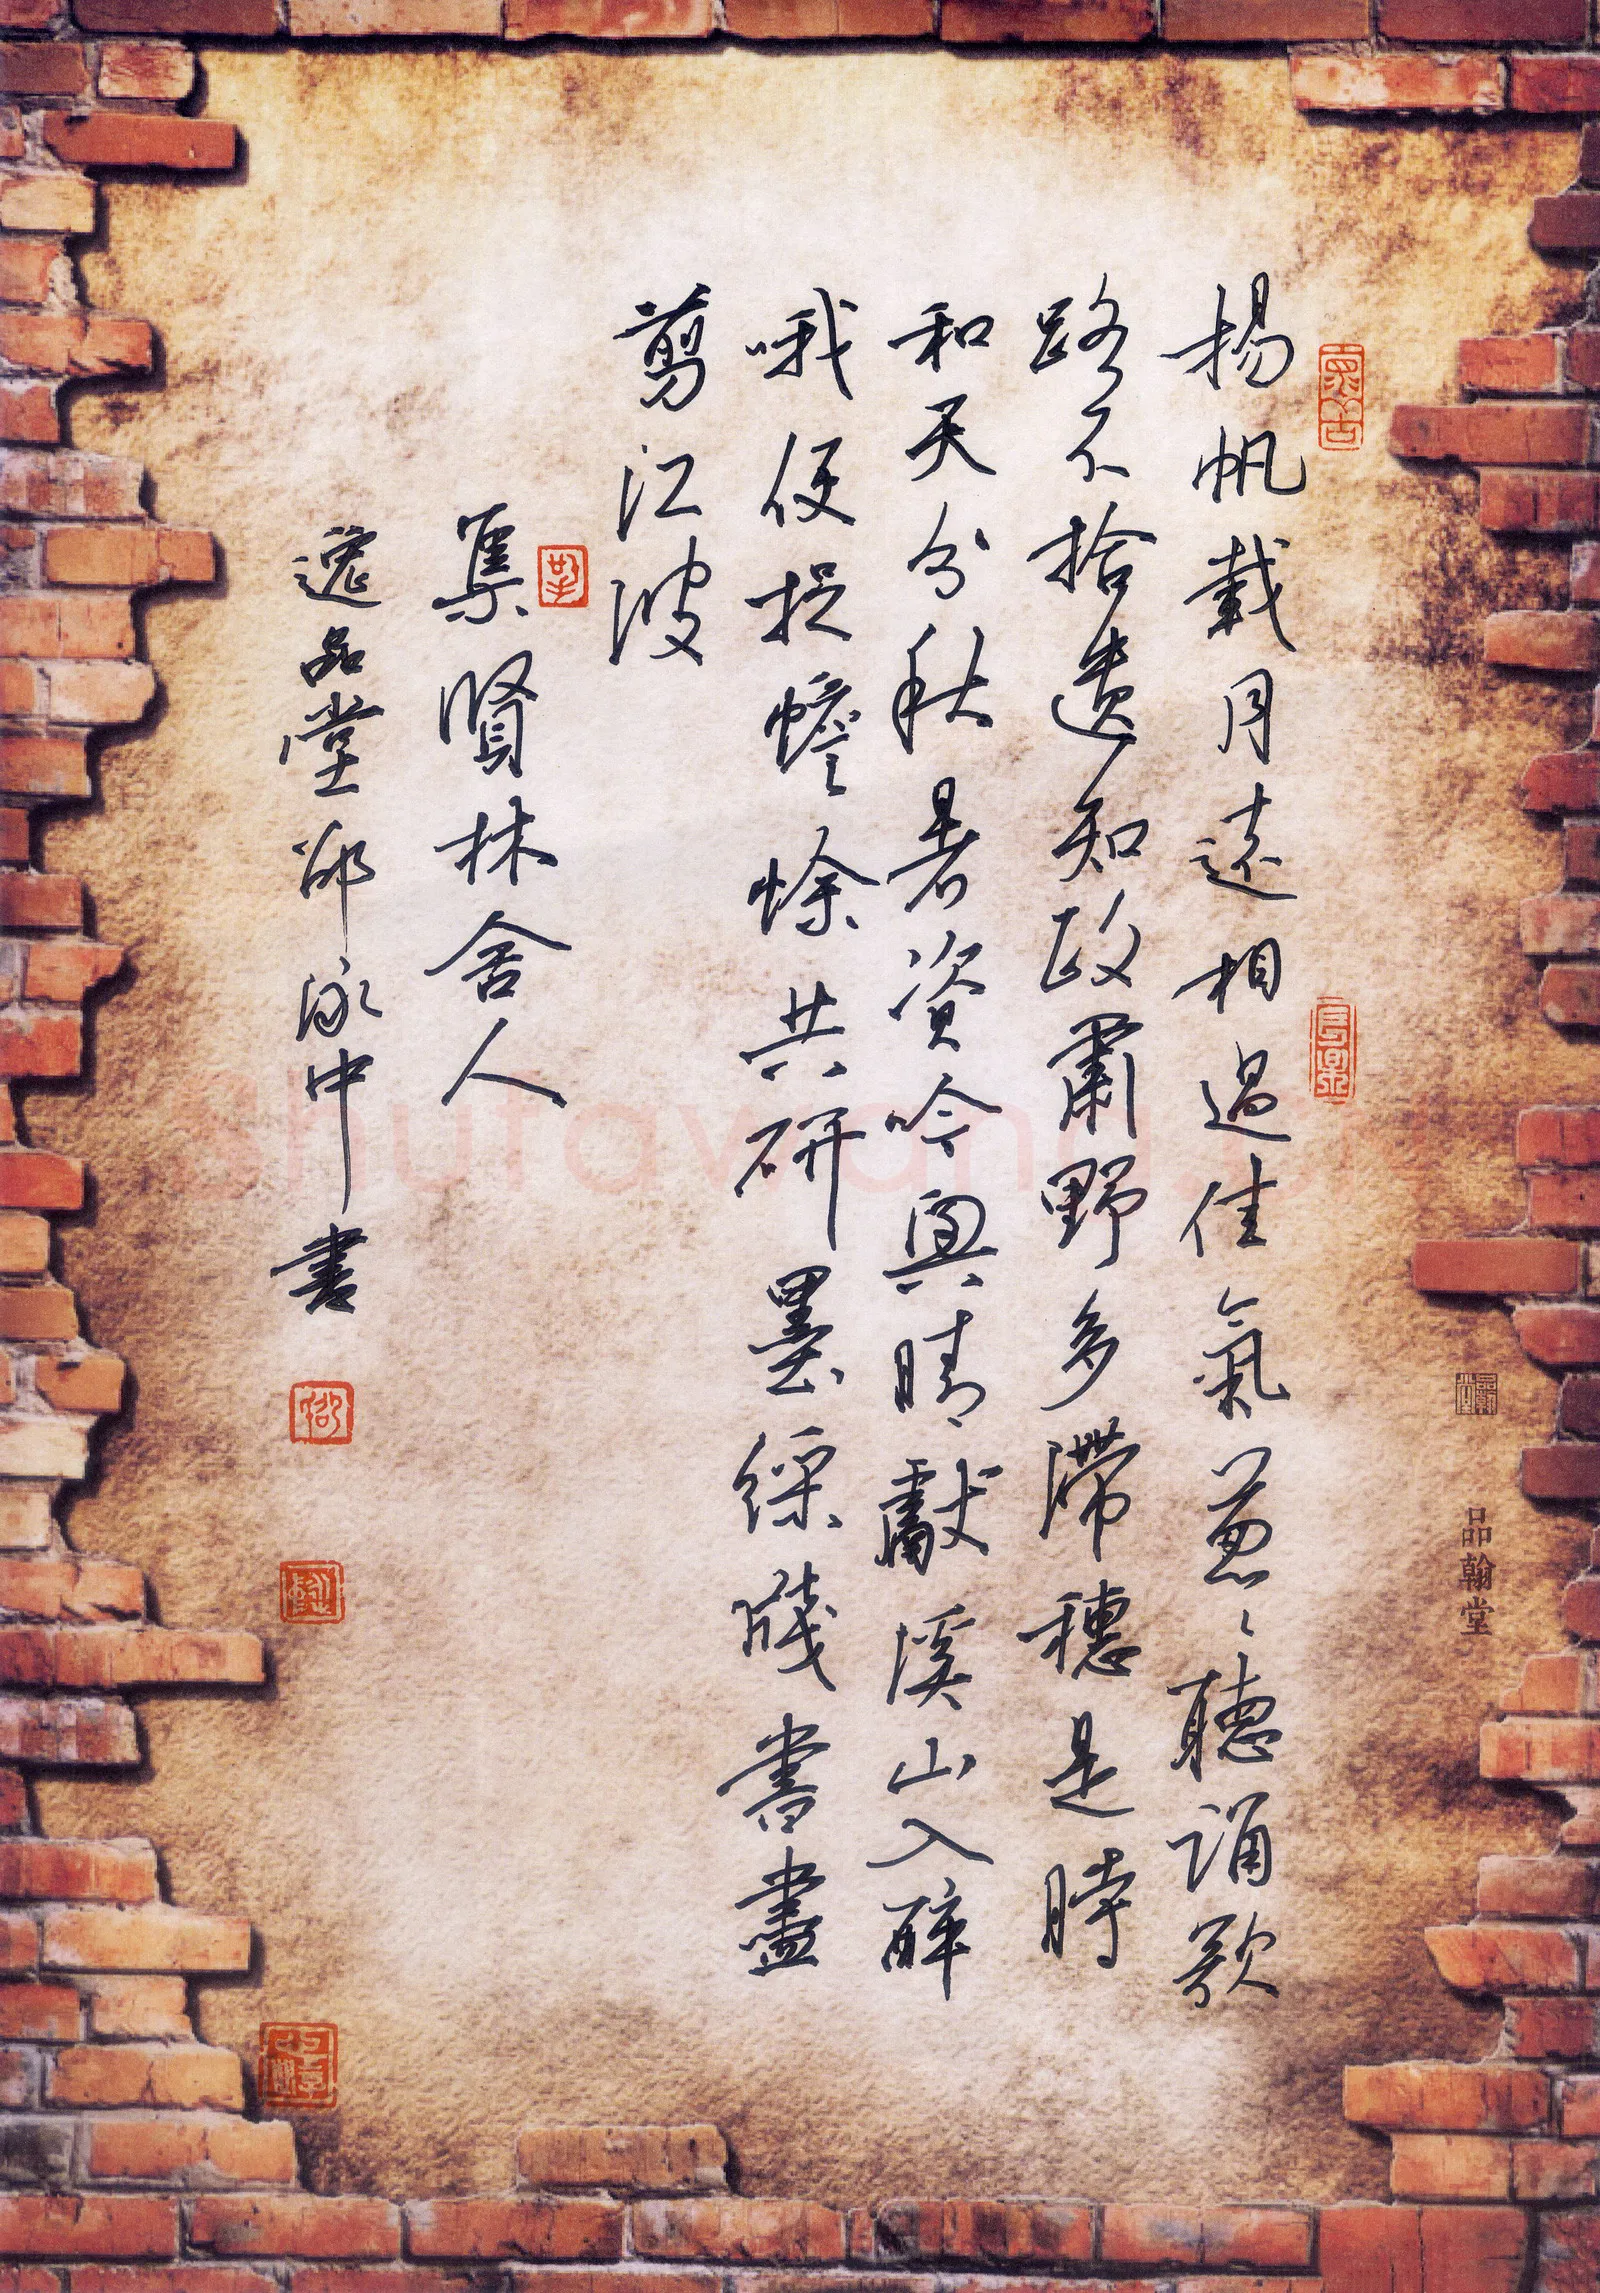 揚帆載月遠相過佳氣蔥〻聽誦歌
路不拾遺知政肅野多滯穗是時
和天分秋暑資吟興晴獻溪山入醉
哦便捉蟾蜍共研墨綵牋書盡
剪江波
集賢林舍人
逸品堂邵泳中書
品翰堂